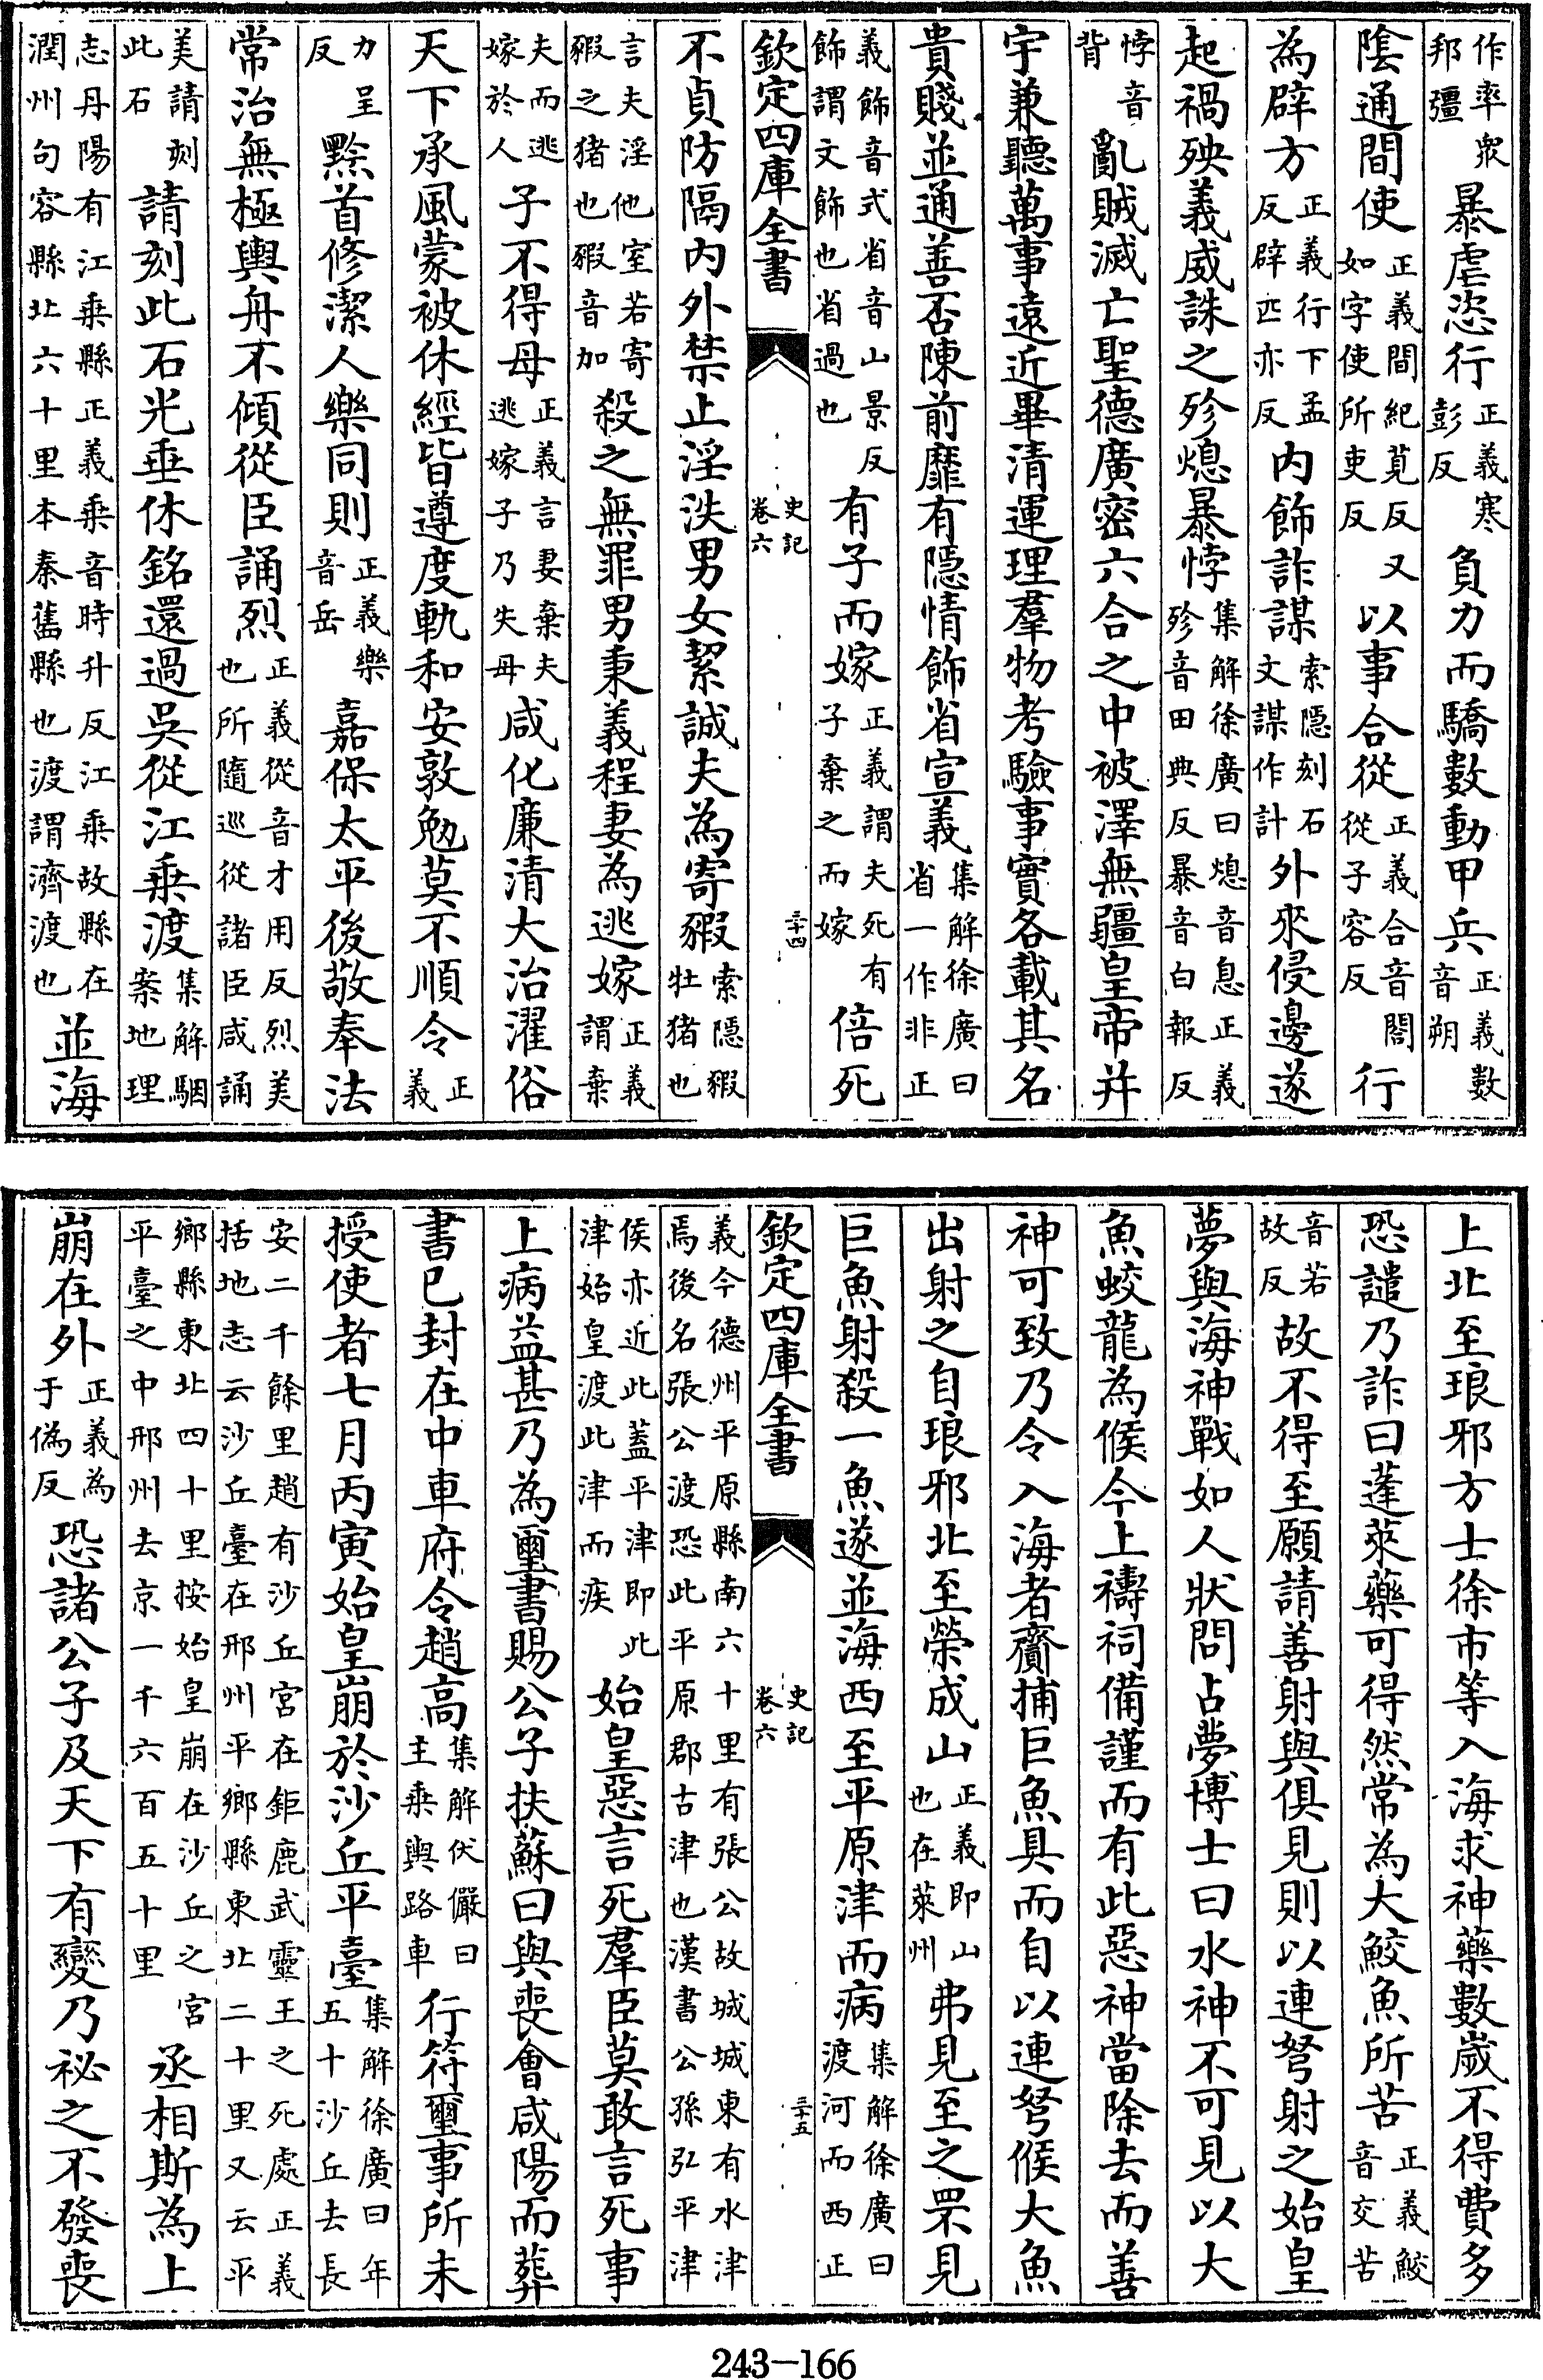 作率衆邦彊暴虐恣行正義寒彭反負力而驕數動甲兵正義數音朔
陰通間使正義間紀莧反又如字使所吏反以事合從正義合音閤從子容反行
為辟方正義行下孟反辟匹亦反内飾詐謀索隱刻石文謀作計外來侵邊遂
起禍殃義威誅之殄熄暴悖集解徐廣曰熄音息正義殄音田典反暴音白報反
悖音背亂賊滅亡聖德廣密六合之中被澤無疆皇帝并
宇兼聽萬事遠近畢清運理羣物考驗事實各載其名
貴賤並通善否陳前靡有隠情飾省宣義集解徐廣曰省一作非正
義飾音式省音山景反飾謂文飾也省過也有子而嫁正義謂夫死有子棄之而嫁倍死
欽定四庫全書 史記卷六 三十四
不貞防隔内外禁止淫泆男女絜誠夫為寄豭索隱豭牡猪也
言夫淫他室若寄豭之猪也豭音加殺之無罪男秉義程妻為逃嫁正義謂棄
夫而逃嫁於人子不得母正義言妻棄夫逃嫁子乃失母咸化廉清大治濯俗
天下承風蒙被休經皆遵度軌和安敦勉莫不順令正義
力呈反黔首修潔人樂同則正義樂音岳嘉保太平後敬奉法
常治無極輿舟不傾從臣誦烈正義從音才用反烈美也所隨巡從諸臣咸誦
美請刻此石請刻此石光垂休銘還過吳從江乗渡集解駰案地理
志丹陽有江乗縣正義乗音時升反江乗故縣在潤州句容縣北六十里本秦舊縣也渡謂濟渡也並海
上北至琅邪方士徐市等入海求神藥數嵗不得費多
恐譴乃詐曰蓬萊藥可得然常為大鮫魚所苦正義鮫音交苦
音若故反故不得至願請善射與俱見則以連弩射之始皇
夢與海神戰如人狀問占夢博士曰水神不可見以大
魚蛟龍為候今上禱祠備謹而有此惡神當除去而善
神可致乃令入海者齎捕巨魚具而自以連弩候大魚
出射之自琅邪北至榮成山正義即山也在萊州弗見至之罘見
巨魚射殺一魚遂並海西至平原津而病集解徐廣曰渡河而西正
欽定四庫全書 史記卷六 三十五
義今德州平原縣南六十里有張公故城城東有水津焉後名張公渡恐此平原郡古津也漢書公孫弘平津
侯亦近此蓋平津即此津始皇渡此津而疾始皇惡言死羣臣莫敢言死事
上病益甚乃為璽書賜公子扶蘇曰與喪會咸陽而葬
書已封在中車府令趙高集解伏儼曰主乗輿路車行符璽事所未
授使者七月丙寅始皇崩於沙丘平臺集解徐廣曰年五十沙丘去長
安二千餘里趙有沙丘宮在鉅鹿武靈王之死處正義括地志云沙丘臺在邢州平鄉縣東北二十里又云平
鄉縣東北四十里按始皇崩在沙丘之宮平臺之中邢州去京一千六百五十里丞相斯為上
崩在外正義為于偽反恐諸公子及天下有變乃祕之不發喪
243-166